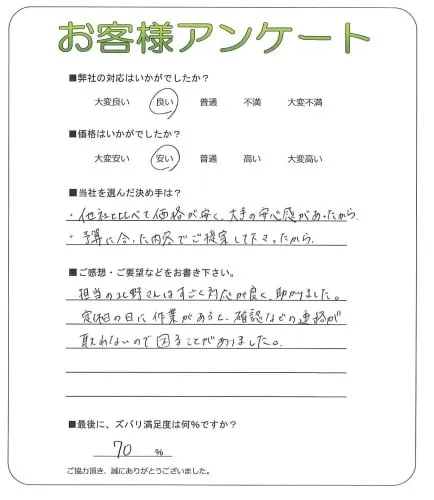 お客様アンケート
■弊社の対応はいかがでしたか?
大変良い 良い 普通 不満 大変不満
■価格はいかがでしたか?
大変安い 安い 普通 高い 大変高い
■当社を選んだ決め手は?
・他社と比べて価格が安く、大手の安心感があったから
・予算に合った内容でご提案して下さったから。
■ご感想・ご要望などをお書き下さい。
担当の北野さんはすごく対応が良く、助かりました。
定休の日に作業があると、確認などの連絡が
取れないので困ることがありました。
■最後に、ズバリ満足度は何%ですか?
70 %
ご協力頂き、誠にありがとうございました。